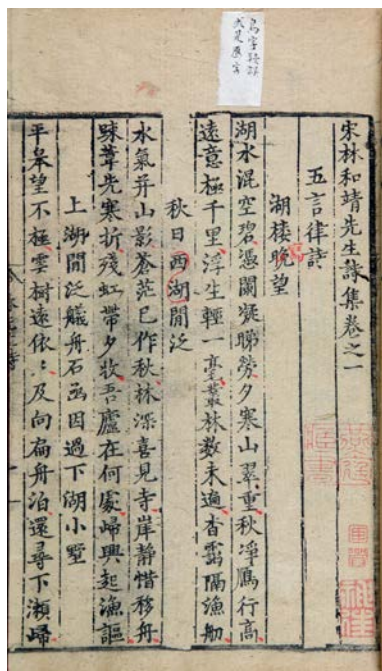 宋林和靖先生詩集卷之一
五言律詩
湖樓晚望
湖水混空碧憑闌凝睇勞夕寒山翠重秋淨鴈行高
遠意極千里浮生輕一毫叢林數未遍杳靄隔漁舠
秋日西湖閒泛
水氣并山影蒼茫已作秋林深喜見寺岸靜惜移舟
疎葦先寒折殘虹帶夕收吾廬在何處歸興起漁謳
上湖閒泛艤舟石函因過下湖小墅
平皋望不極雲樹遠依〻及向扁舟泊還尋下瀨歸